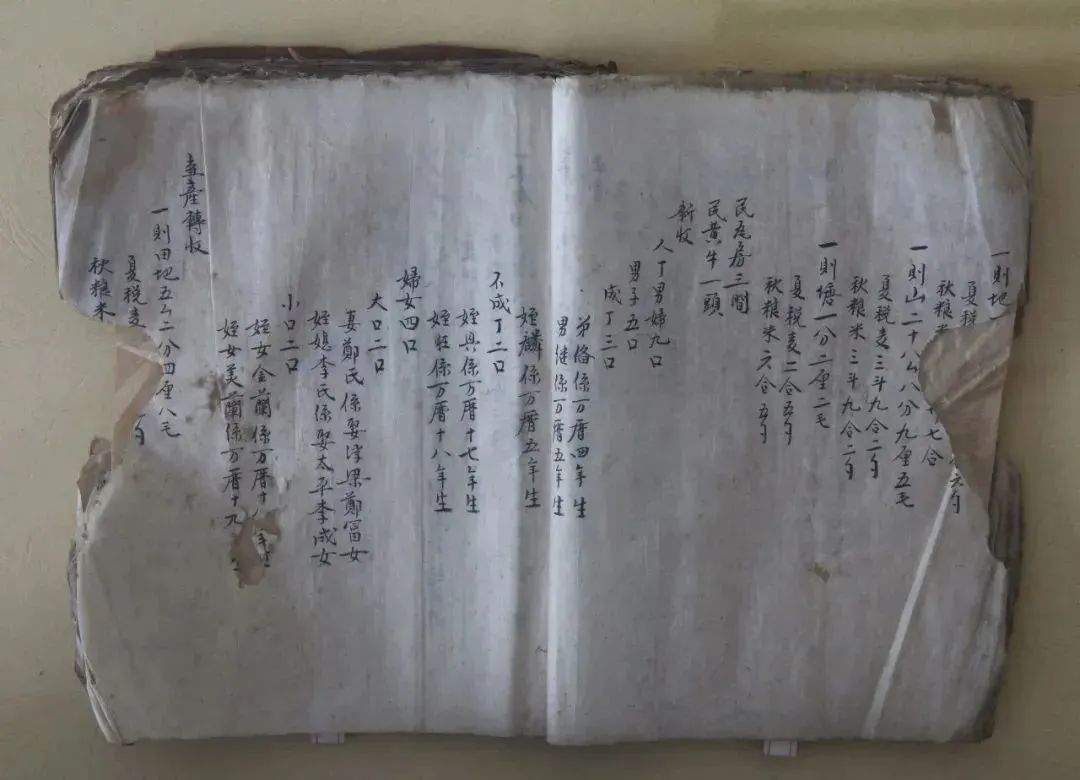 一則地
夏税
秋粮米 十七合
一則山二十八厶八分九厘五毛
夏税麦三斗九合二勺 六勺
秋粮米三斗九合二勺
一則塘一分二厘二毛
夏税麦二合五勺
秋粮米六合五勺
民瓦房三間
民黄牛一頭
新收
人丁男婦九口
男子五口
成丁三口
弟 係万曆四年生
男 係万曆五年生
姪麟係万曆五年生
不成丁二口
姪興係万曆十七年生
姪旺係万曆十八年生
婦女四口
大口二口
妻鄭氏係娶浮梁鄭冨女
姪媳李氏係娶太平李成女
小口二口
姪女金蘭係万曆十 年生
姪女美蘭係万曆十九
事產轉收
一則田地五厶二分四厘八毛
夏税麦 勺
秋粮米